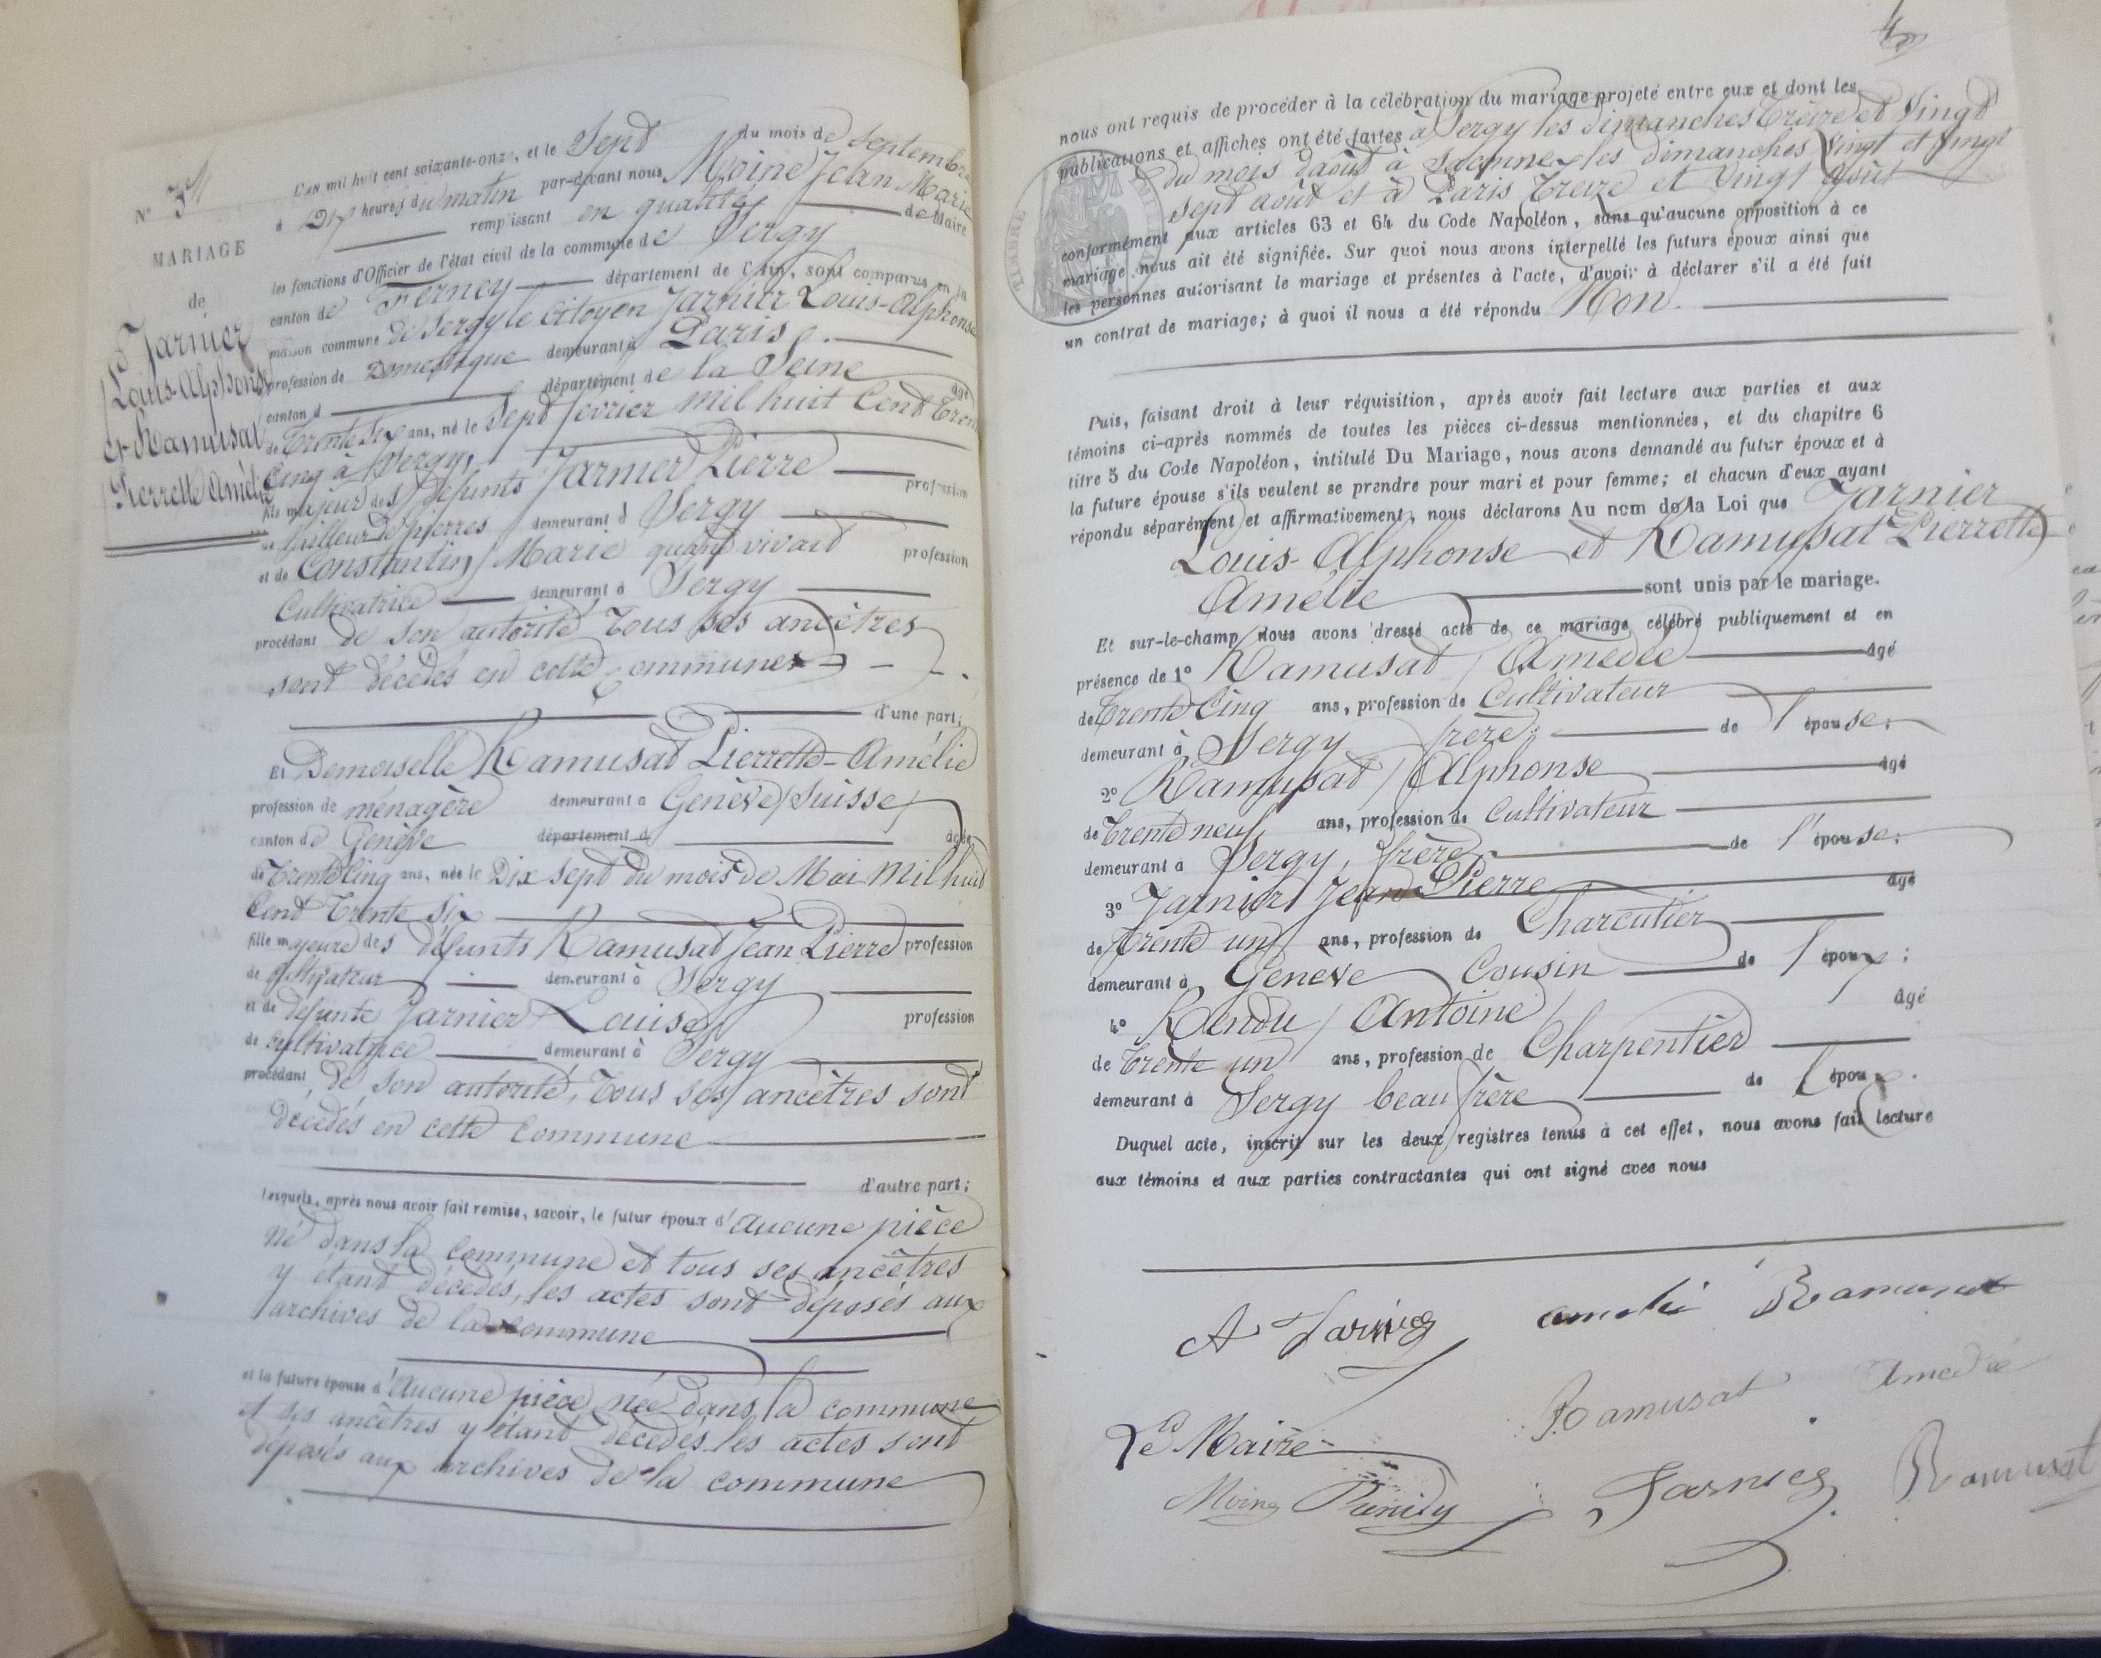 N° 3
MARIAGE
de
Jarnier
Louis-Alphonse
et Ramusat
Pierrette Amélie
L'an mil huit cent soixante-onze, et le Sept du mois de Septembre
à heures du matin par-devant nous Moine Jean Marie
remplissant en qualité de Maire
les fonctions d'Officier de l'état civil de la commune de Sergy
canton de Ferney département de l'Ain, sont comparus en la
maison commune de Sergy le Citoyen Jarnier Louis-Alphonse
profession de Domestique demeurant à Paris
canton d département de la Seine âgé
de Trente Six ans, né le Sept février mil huit Cent Trente
Cinq à Sergy,
fils majeur des défunts Jarnier Pierre profession
Tailleur de pierres demeurant à Sergy
et de Constantin Marie quand vivait profession
Cultivatrice demeurant à Sergy
procédant de son autorité Tous ses ancêtres
sont décédés en cette Commune
d'une part;
Et Demoiselle Ramusat Pierrette-Amélie
profession de ménagère demeurant à Genève (Suisse)
canton de Genève département d âgée
de Trente Cinq ans, née le Dix sept du mois de Mai mil huit
Cent Trente Six
fille majeure des défunts Ramusat Jean Pierre profession
de Cultivateur demeurant à Sergy
et de défunte Jarnier Louise profession
de cultivatrice demeurant à Sergy
procédant de son autorité, Tous ses ancêtres sont
décédés en cette commune
d'autre part;
Lesquels, après nous avoir fait remise, savoir, le futur époux d'aucune pièce
né dans la commune et tous ses ancêtres
y étant décédés, les actes sont déposés aux
archives de la commune
et la future épouse d'aucune pièce née dans la commune
et ses ancêtres y étant décédés les actes sont
déposés aux archives de la commune
nous ont requis de procéder à la célébration du mariage projeté entre eux et dont les
publications et affiches ont été faites à Sergy les dimanches Treize et Vingt
du mois d'août à les dimanches Vingt et Vingt
sept août et à Paris Treize et Vingt août
conformément aux articles 63 et 64 du Code Napoléon, sans qu'aucune opposition à ce
mariage nous ait été signifiée. Sur quoi nous avons interpellé les futurs époux ainsi que
les personnes autorisant le mariage et présentes à l'acte, d'avoir à déclarer s'il a été fait
un contrat de mariage; à quoi il nous a été répondu Non
TIMBRE
Puis, faisant droit à leur réquisition, après avoir fait lecture aux parties et aux
témoins ci-après nommés de toutes les pièces ci-dessus mentionnées, et du chapitre 6
titre 5 du Code Napoléon, intitulé Du Mariage, nous avons demandé au futur époux et à
la future épouse s'ils veulent se prendre pour mari et pour femme; et chacun d'eux ayant
répondu séparément et affirmativement, nous déclarons Au nom de la Loi que Jarnier
Louis-Alphonse et Ramusat Pierrette
Amélie sont unis par le mariage.
Et sur-le-champ Nous avons dressé acte de ce mariage célébré publiquement et en
présence de 1° Ramusat Amédée âgé
de Trente Cinq ans, profession de Cultivateur
demeurant à Sergy frère de l'épouse;
2° Ramusat Alphonse âgé
de Trente neuf ans, profession de Cultivateur
demeurant à Sergy, frère de l'épouse;
3° Jarnier Jean Pierre âgé
de Trente un ans, profession de Charcutier
demeurant à Genève Cousin de l'époux;
4° Rendu Antoine âgé
de Trente un ans, profession de Charpentier
demeurant à Sergy beau frère de l'époux.
Duquel acte, inscrit sur les deux registres tenus à cet effet, nous avons fait lecture
aux témoins et aux parties contractantes qui ont signé avec nous
A Jarnier amélie Ramusat
Ramusat Amédée
Le Maire
Moine Jarnier Ramusat